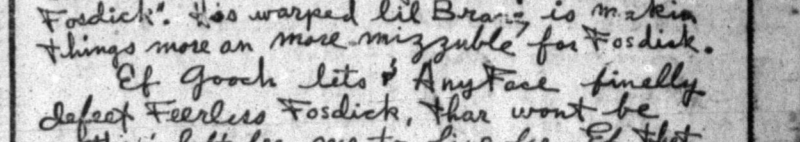 Fosdick". His warped lil Brane is makin
things more an more mizzuble, for Fosdick.
Ef Gooch lets AnyFace finelly
defeet Feerless Fosdick, thar wont be
Ef thet